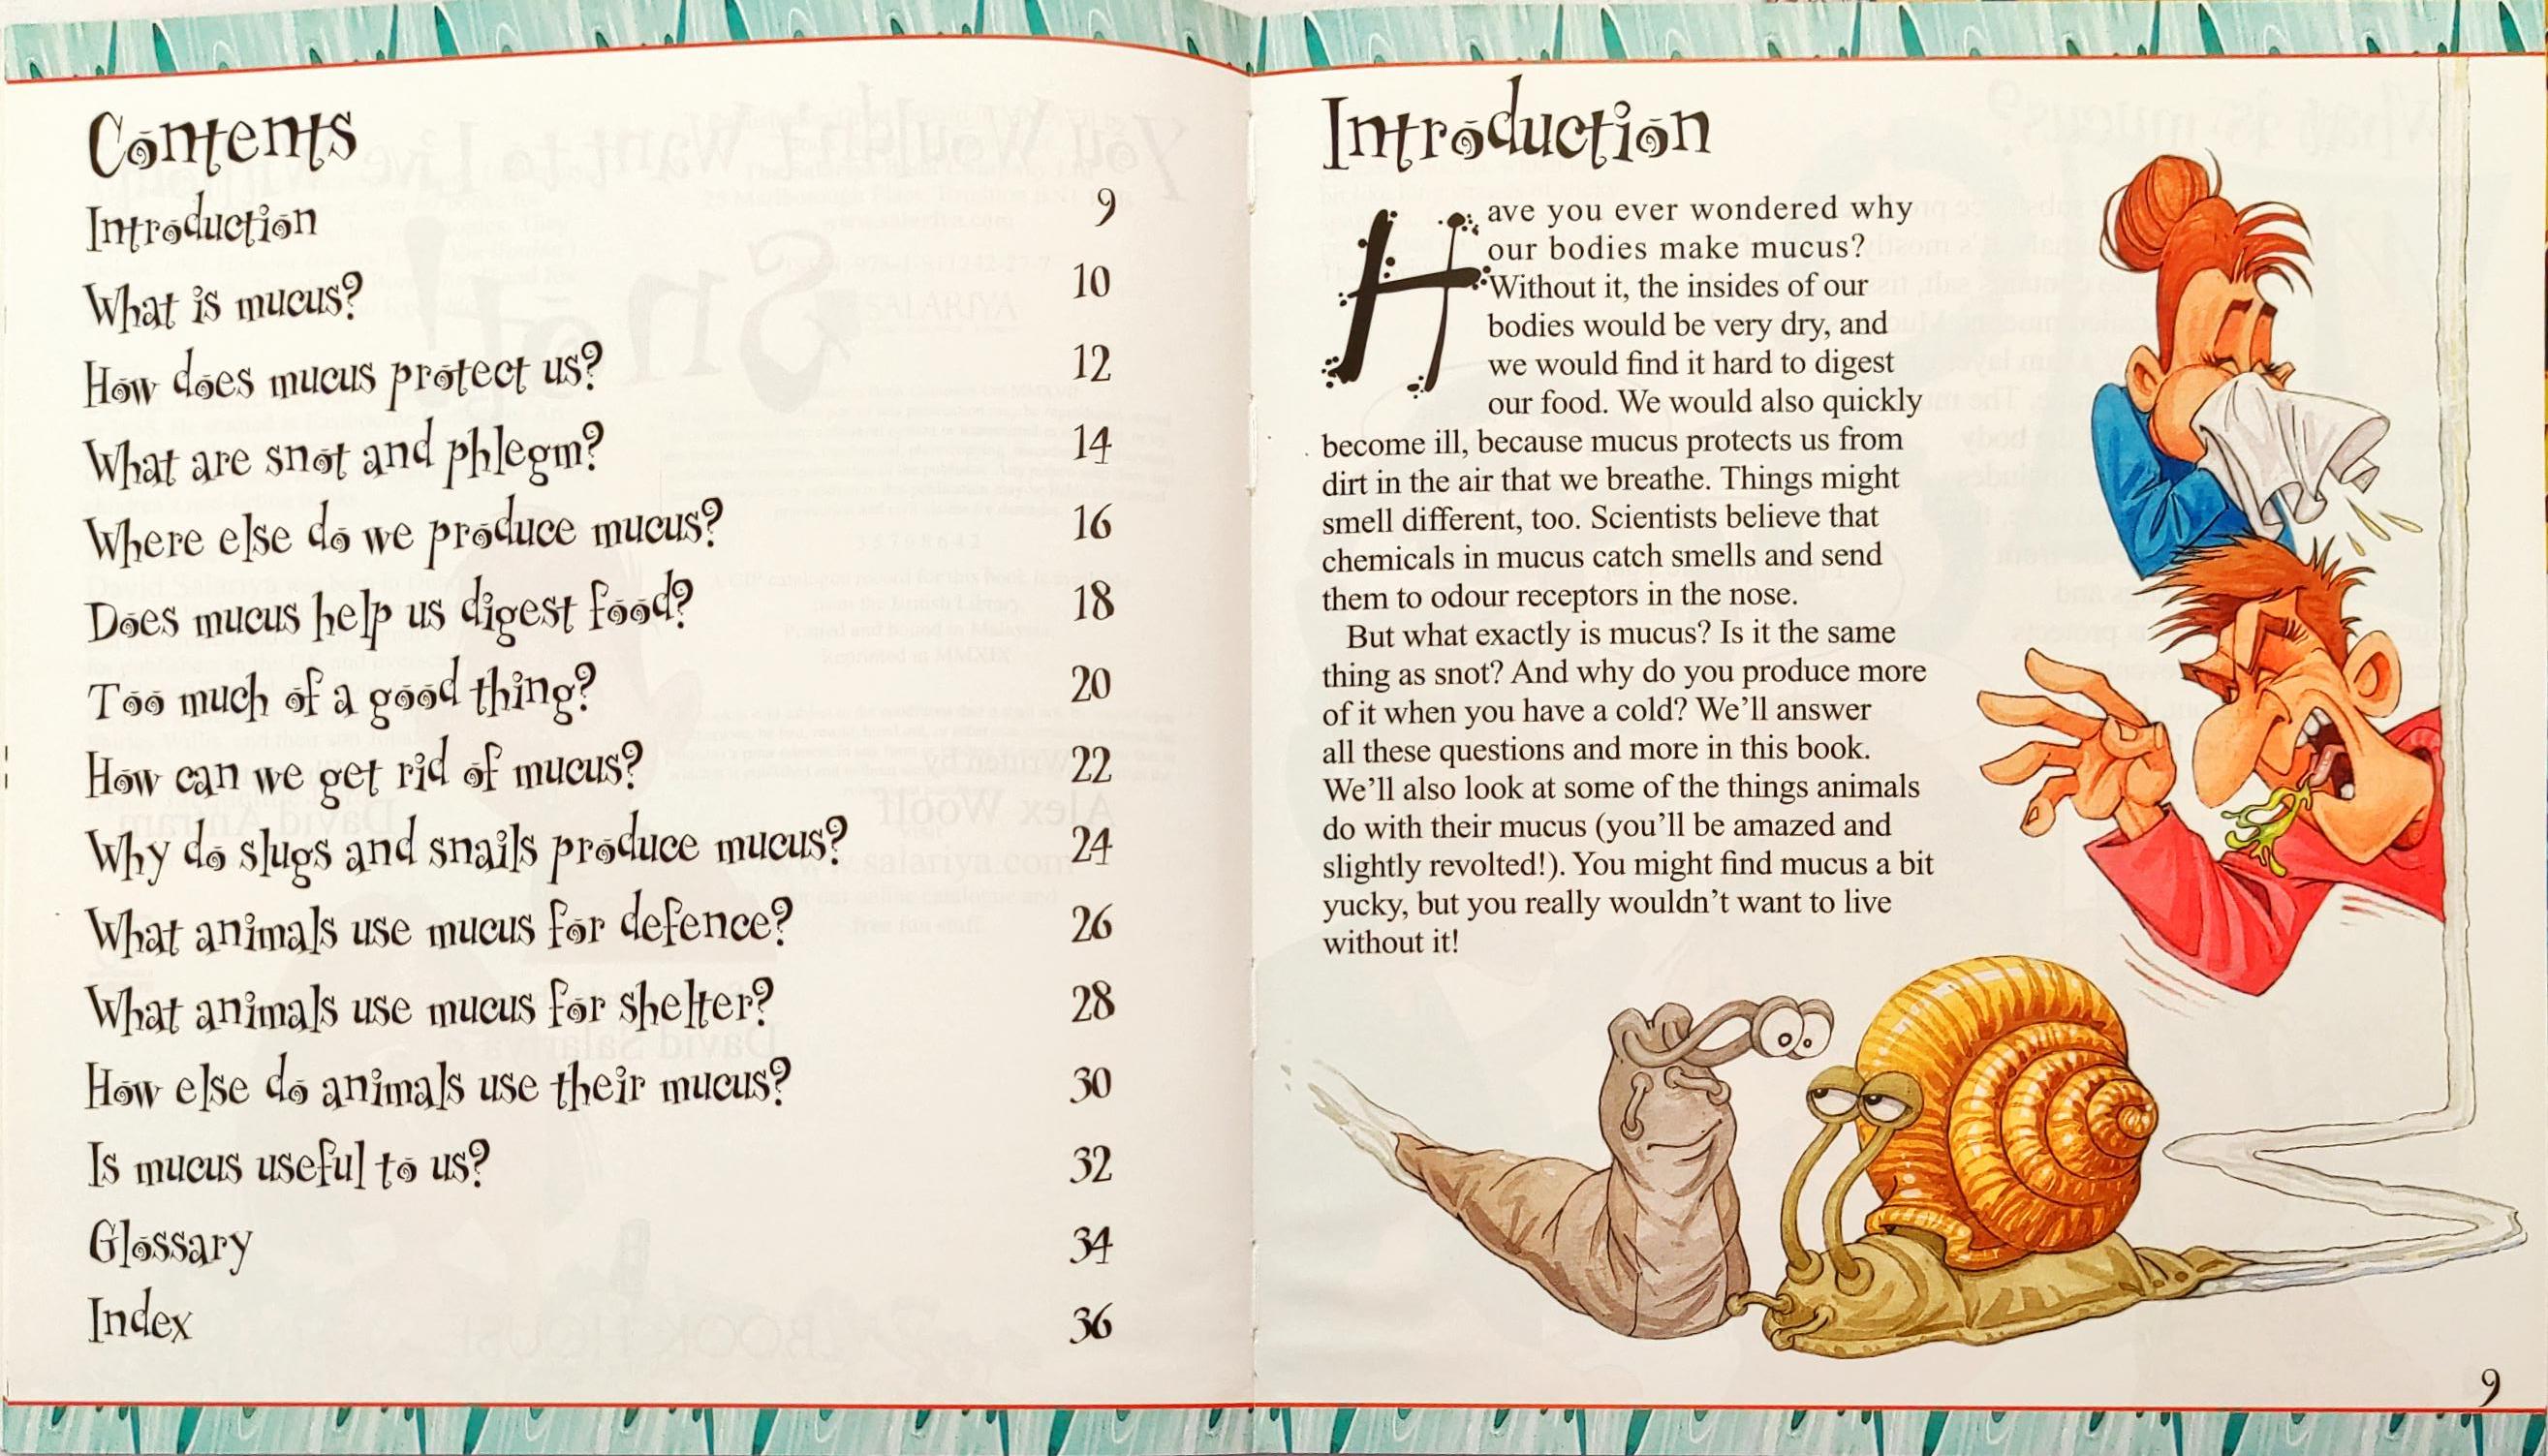 Contents
Introduction 9
What is mucus? 10
How does mucus protect us? 12
What are snot and phlegm? 14
Where else do we produce mucus? 16
Does mucus help us digest food? 18
Too much of a good thing? 20
How can we get rid of mucus? 22
Why do slugs and snails produce mucus? 24
What animals use mucus for defence? 26
What animals use mucus for shelter? 28
How else do animals use their mucus? 30
Is mucus useful to us? 32
Glossary 34
Index 36
Introduction
Have you ever wondered why
our bodies make mucus?
Without it, the insides of our
bodies would be very dry, and
we would find it hard to digest
our food. We would also quickly
become ill, because mucus protects us from
dirt in the air that we breathe. Things might
smell different, too. Scientists believe that
chemicals in mucus catch smells and send
them to odour receptors in the nose.
But what exactly is mucus? Is it the same
thing as snot? And why do you produce more
of it when you have a cold? We'll answer
all these questions and more in this book.
We'll also look at some of the things animals
do with their mucus (you'll be amazed and
slightly revolted!). You might find mucus a bit
yucky, but you really wouldn't want to live
without it!
9